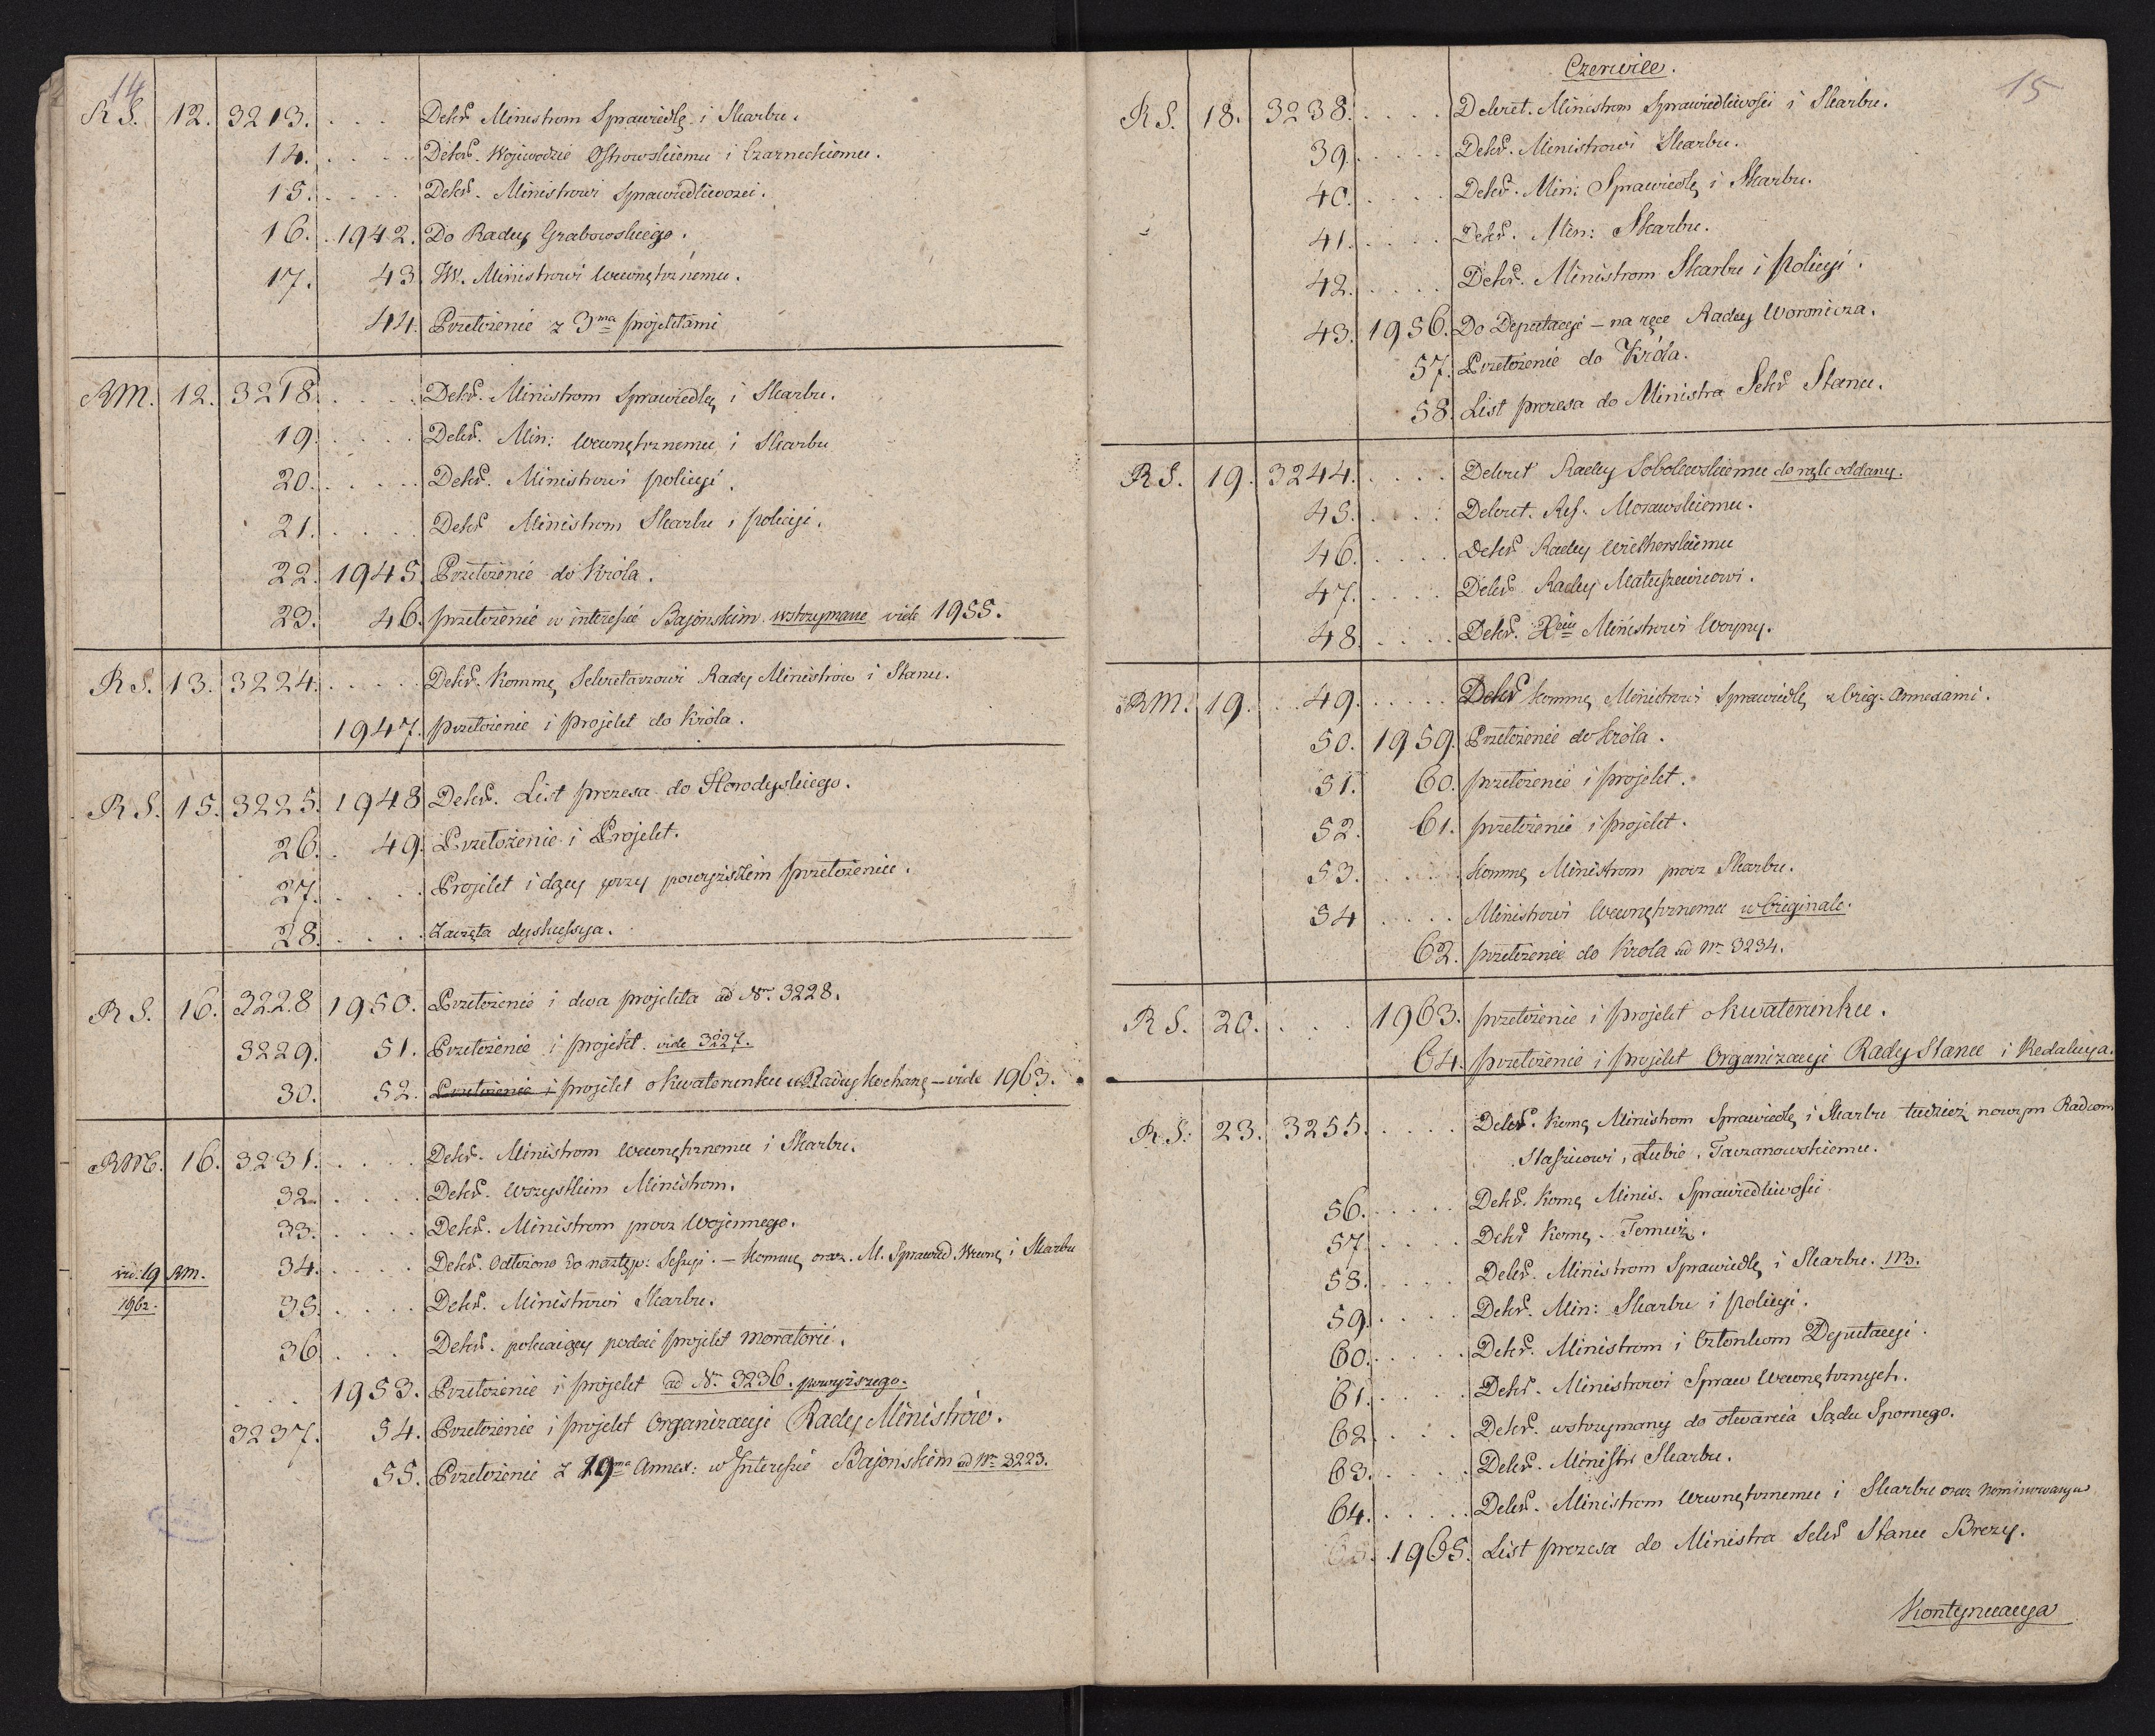 14
R S. 12. 3213. . . . Dekr. Ministrom Sprawiedlę. i Skarbu.
14. . . . . Dekr. Wojewodzie Ostrowskiemu i Czarneckiemu.
15. . . . . Dekr. Ministrowi Sprawiedliwości.
16. . 1942. Do Radcy Grabowskiego.
17. 43. W. Ministrowi Wewnętrznemu.
44. Przełożenie z 3ma projektami
RM. 12. 3218. . . . . Dekr. Ministrom Sprawiedlę i Skarbu.
19. . . . . Dekr. Min: Wewnętrznemu i Skarbu
20. . . . . Dekr. Ministrowi policyi.
21. . . . . Dekr Ministrom Skarbu i policyi.
22. 1945. Przełożenie do Króla.
23. 46. przełożenie w interesie Bajońskim. wstrzymane vide 1955.
R S. 13. 3224. . . . . Dekr. Kommę Sekretarzowi Rady Ministrów i Stanu.
1947. przełożenie i projekt do Króla.
R S. 15. 3225. 1948 Dekr. List prezesa do Horodyskiego.
26. . 49. Przełożenie i Projekt.
27. . . . . Projekt idący przy powyższem przełożeniu.
28. . . . . Zaczęta dyskussya.
R S. 16. 3228 1950. Przełożenie i dwa projekta ad Nr. 3228.
3229. 51. Przełożenie i projekt. vide 3227.
30. 52. Przełożenie i projekt o kwaterunku u Radcy Kochanę – vide 1963.
RM. 16. 3231. . . . . Dekr. Ministrom Wewnętrznemu i Skarbu.
32. . . . . Dekr. Wszystkim Ministrom.
33. . . . . Dekr. Ministrom prócz Wojennego.
34. . . . . Dekr. Odłożono do następ: Sessyi. – Kommę oraz. M. Sprawied. Wewnę i Skarbu
vid: 19 RM.
1962.
35. . . . . Dekr. Ministrowi Skarbu.
36 . . . Dekr. polecający podać projekt moratorii.
. . . 1953. Przełożenie i projekt ad Nr. 3236. powyższego.
3237. 54. Przełożenie i projekt Organizacyi Rady Ministrów.
55. Przełożenie z 19ma Annex: w Interesie Bajońskim ad Nr 3223.
Czerwiec.
15
R S. 18. 3238. . . . . Dekret. Ministrom Sprawiedliwości i Skarbu.
39. . . . . Dekr. Ministrowi Skarbu.
40. . . . . Dekr. Min: Sprawiedlę i Skarbu.
41. . . . . Dekr. Min: Skarbu.
42. . . . . Dekr. Ministrom Skarbu i policyi.
43. 1956. Do Deputacyi – na ręce Radcy Woronicza.
57. Przełożenie do Króla.
58. List prezesa do Ministra Sekr Stanu.
R S. 19. 3244. . . . . Dekret Radcy Sobolewskiemu do rąk oddany.
45. . . . . Dekret. Ref. Morawskiemu.
46. . . . . Dekr Radcy Wielhorskiemu
47. . . . . Dekr Radcy Matuszewicowi.
48. . . . . Dekr. Xciu Ministrowi Woyny.
RM. 19. . . 49. . . . . . Dekr Kommę Ministrowi Sprawiedlę z Orig. Annexami.
50. 1959. Przełożenie do Króla.
51. 60. przełożenie i projekt.
52. 61. przełożenie i projekt.
53. . . . . Kommę Ministrom prócz Skarbu.
54 . . . . Ministrowi Wewnętrznemu w Originale.
62. przełożenie do Króla ad Nr 3234.
R S. 20. . . . 1963. przełożenie i projekt o kwaterunku.
64. przełożenie i projekt Organizacyi Rady Stanu i Redakcya.
R S: 23. 3255. . . . . Dekr. Komę Ministrom Sprawiedlę i Skarbu tudzież nowym Radcom
Staszicowi, Łubie, Taczanowskiemu.
56. . . . . Dekr. Komę Minis. Sprawiedliwości
57 . . . . Dekr Komę.
58. . . . . Dekr. Ministrom Sprawiedlę i Skarbu.
59. . . . . Dekr. Min: Skarbu i policyi.
60. . . . . Dekr. Ministrom i Członkom Deputacyi.
61. . . . . Dekr. Ministrowi Spraw Wewnętrznych.
62. . . . . Dekr. wstrzymany do otwarcia Sądu Spornego.
63. . . . . Dekr. Ministr. Skarbu.
64. . . . . Dekr. Ministrom Wewnętrznemu i Skarbu oraz nominowanym
65. . 1965. List prezesa do Ministra Sekr Stanu Brezy.
Kontynuacya